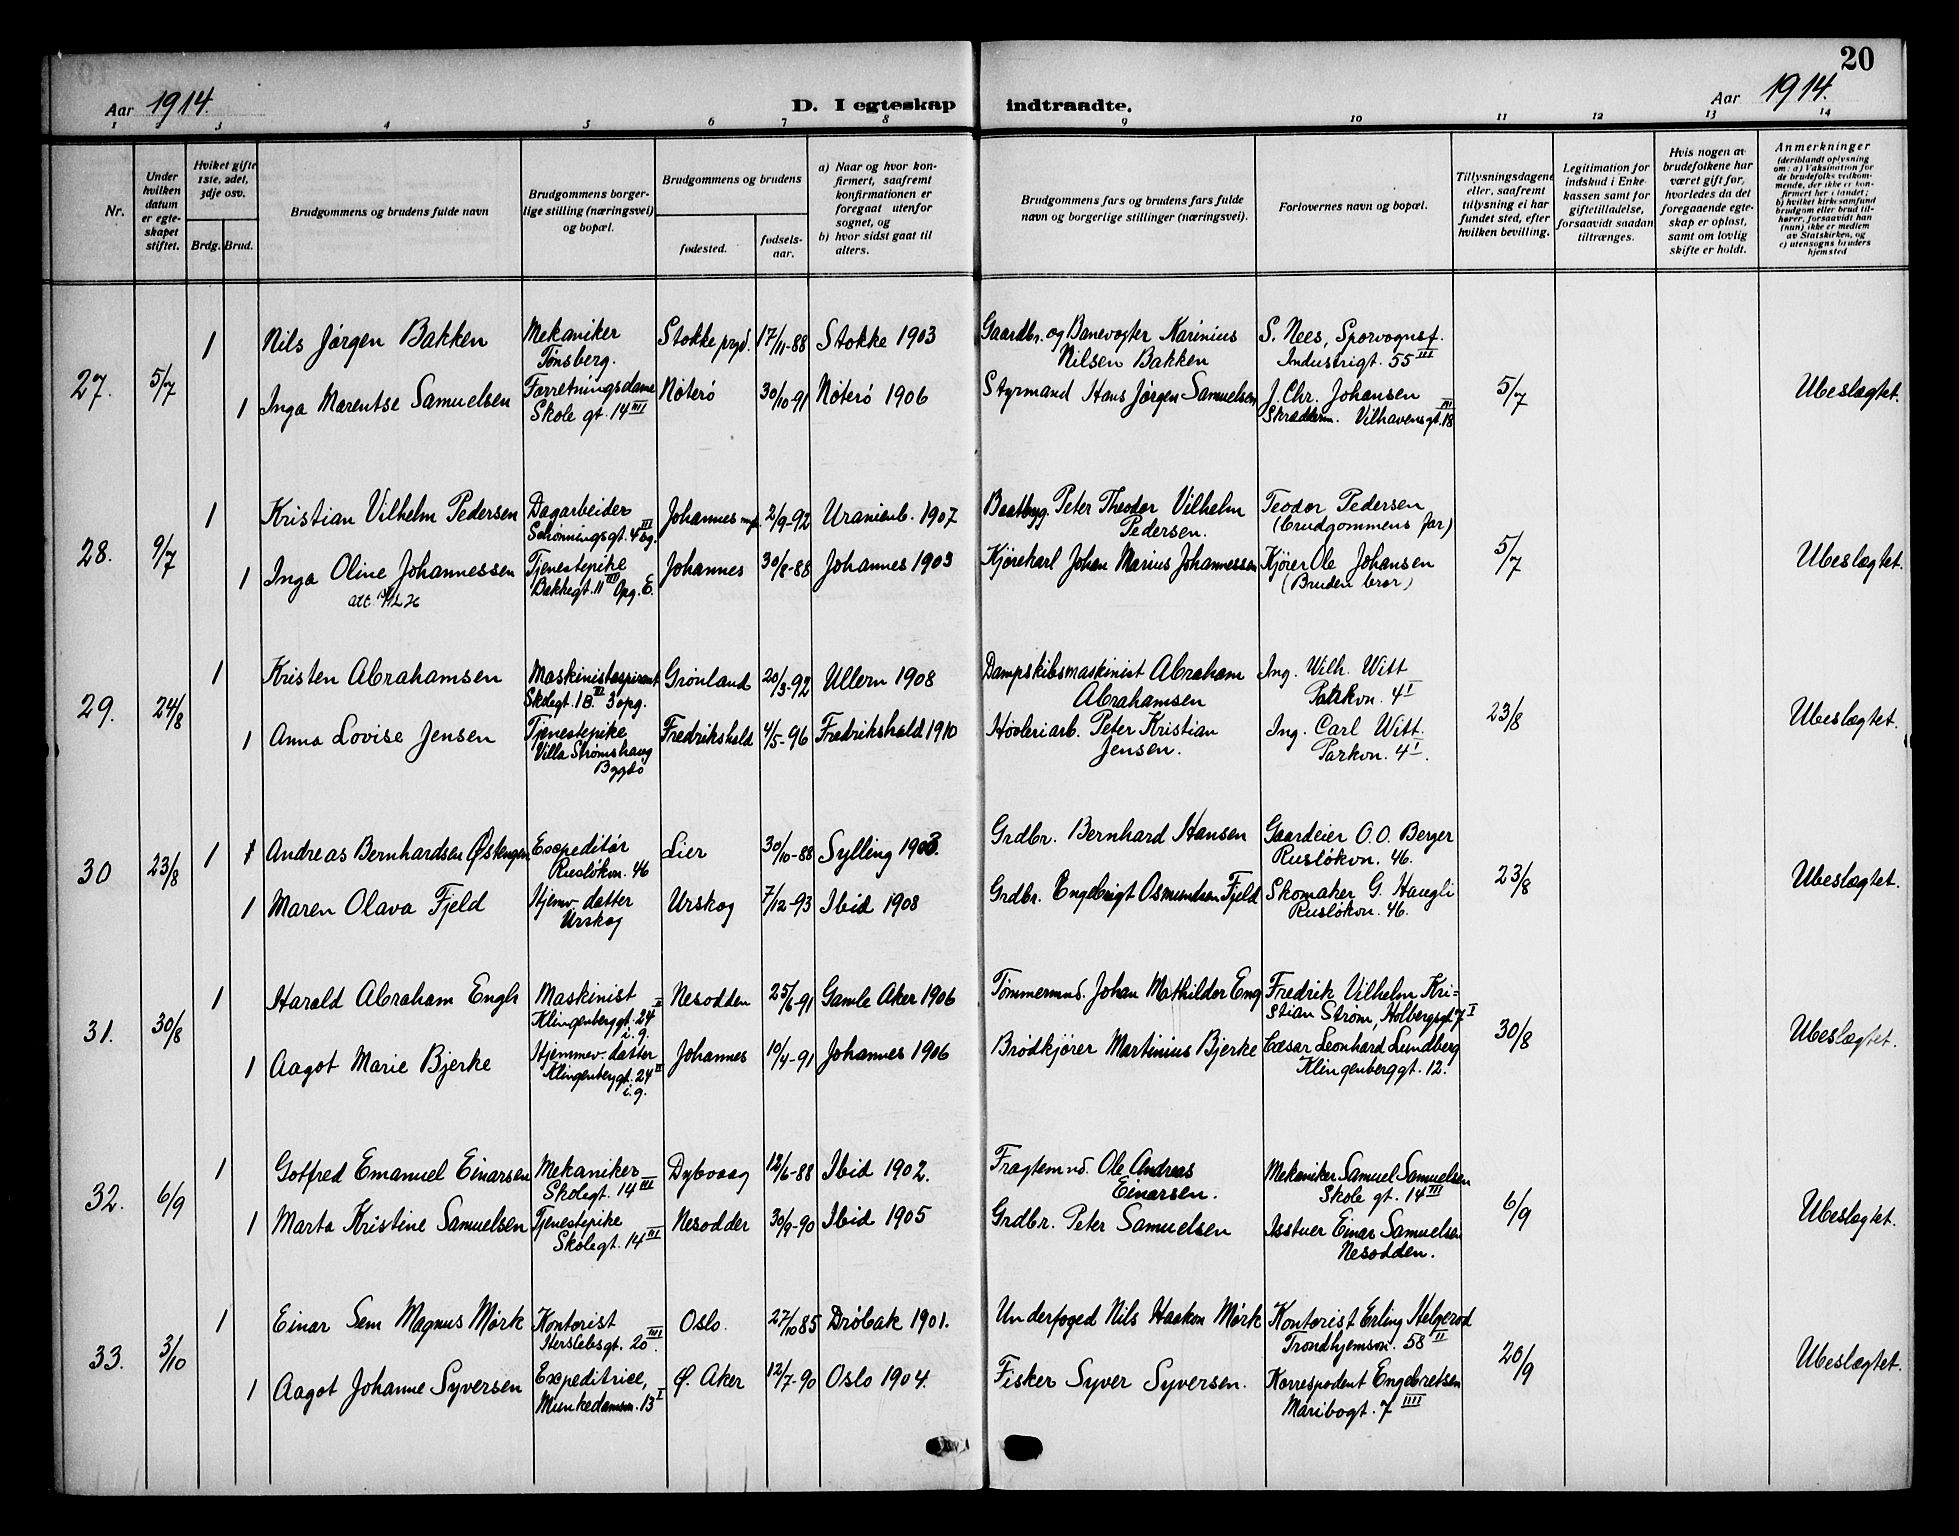 20
Aar 1914.
D. I egteskap indtraadte.
Aar 1914.
1 2 3 4 5 6 7 8 9 10 11 12 13 14
Nr.
Under hvilken datum er egteskapet stiftet.
Hvilket gifte 1ste, 2det, 3dje osv.
Brdg. Brud.
Brudgommens og brudens fulde navn
Brudgommens borgerlige stilling (næringsvei) og bopæl.
Brudgommens og brudens
fødested.
fødselsaar.
a) Naar og hvor konfirmert, saafremt konfirmationen er foregaat utenfor sognet, og
b) hvor sidst gaat til alters.
Brudgommens fars og brudens fars fulde navn og borgerlige stillinger (næringsvei).
Forlovernes navn og bopæl.
Tillysningsdagene eller, saafremt tillysning ei har fundet sted, efter hvilken bevilling.
Legitimation for indskud i Enkekassen samt for giftetilladelse, forsaavidt saadan tiltrænges.
Hvis nogen av brudefolkene har været gift før, hvorledes da det foregaaende egteskap er opløst, samt om lovlig skifte er holdt.
Anmerkninger
(deriblandt oplysning om: a) Vaksination for de brudefolks vedkommende, der ikke er konfirmert her i landet; b) hvilket kirkesamfund brudgom eller brud tilhører, forsaavidt han (hun) ikke er medlem av Statskirken, og c) utensogns bruders hjemsted
27. 5/7
1 Nils Jørgen Bakken Mekaniker Tønsberg. Stokke prgd. 17/11-88 Stokke 1903 Gaardbr. og Banevogter Karinius Nilsen Bakken S. Nees, Sporvognsf. Industrigt. 55 III
1 Inga Marentse Samuelsen Forretningsdame Skole gt. 14 III Nøterø 30/10-91 Nøterø 1906 Styrmand Hans Jørgen Samuelsen J. Chr. Johansen Skræderm. Vilhavensgt. 18 III 5/7 Ubeslægtet.
28. 9/7
1 Kristian Vilhelm Pedersen Dagarbeider Schønningsgt. 4 III Johannes 2/9-92 Uranienb. 1907 Baatbyg. Peter Theodor Vilhelm Pedersen. Teodor Pedersen (brudgommens far)
1 Inga Oline Johannessen Tjenestepike Bakkegt. 11 III Opg. E. Johannes 30/8-88 Johannes 1903 Kjørekarl Johan Marius Johannessen Kjører Ole Johansen (Bruden bror) 5/7 Ubeslægtet.
att.
29. 24/8
1 Kristen Abrahamsen Maskinistaspirant Skolegt. 18 III 3 opg. Grønland 20/3-92 Ullern 1908 Dampskibsmaskinist Abraham Abrahamsen Ing. Wilh. Witt Parkvn. 4 I
1 Anna Lovise Jensen Tjenestepike Villa Strømshaug Bygdø Fredrikshald 4/5-96 Fredrikshald 1910 Høvleriarb. Peter Kristian Jensen. Ing. Carl Witt. Parkvn. 4 I. 23/8 Ubeslægtet.
30 23/8
1 1 Andreas Bernhardsen Østengen Expeditør Ruseløkvn. 46 Lier 30/10-88 Sylling 1903. Grdbr. Bernhard Hansen Gaardeier O. O. Berger Ruseløkvn. 46.
1 Maren Olava Fjeld Hjemv. datter Urskog Urskog 7/12-93 Ibid 1908 Grdbr. Engebrigt Osmundsen Fjeld Skomaker G. Haugli Ruseløkvn. 46. 23/8 Ubeslægtet.
31. 30/8
1 Harald Abraham Engh Maskinist Klingenberggt. 24 II i. g. Nesodden 25/6-91 Gamle Aker 1906 Tømmermd. Johan Mathilder Eng Fredrik Vilhelm Kristian Strøm, Holbergsgt. 7 I
1 Aagot Marie Bjerke Hjemmev. datter Klingenberggt. 24 II i. g. Johannes 10/4-91 Johannes 1906 Brødkjører Martinius Bjerke Cæsar Leonhard Lundberg Klingenberggt. 12. 30/8 Ubeslægtet.
32. 6/9
1 Gotfred Emanuel Einarsen Mekaniker Skolegt. 14 III Dybvaag 12/6-88 Ibid 1902. Fragtemnd. Ole Andreas Einarsen. Mekaniker Samuel Samuelsen Skole gt. 14 III
1 Marta Kristine Samuelsen Tjenestepike Skolegt. 14 III Nesodden 30/9-90 Ibid 1905 Grdbr. Peter Samuelsen Einar Samuelsen Nesodden. 6/9 Ubeslægtet.
33. 3/10
1 Einar Sem Magnus Mørk Kontorist Herslebsgt. 20 III. Oslo. 27/10 85 Drøbak 1901. Underfoged Nils Haakon Mørk Kontorist Erling Helgerod Trondhjemsvn. 58 II
1 Aagot Johanne Syversen Expeditrice, Munkedamsvn. 13 I Ø. Aker 12/7-90 Oslo 1904. Fisker Syver Syversen. Korrespodent Engebretsen Maribogt. 7 IIII 20/9 Ubeslægtet.